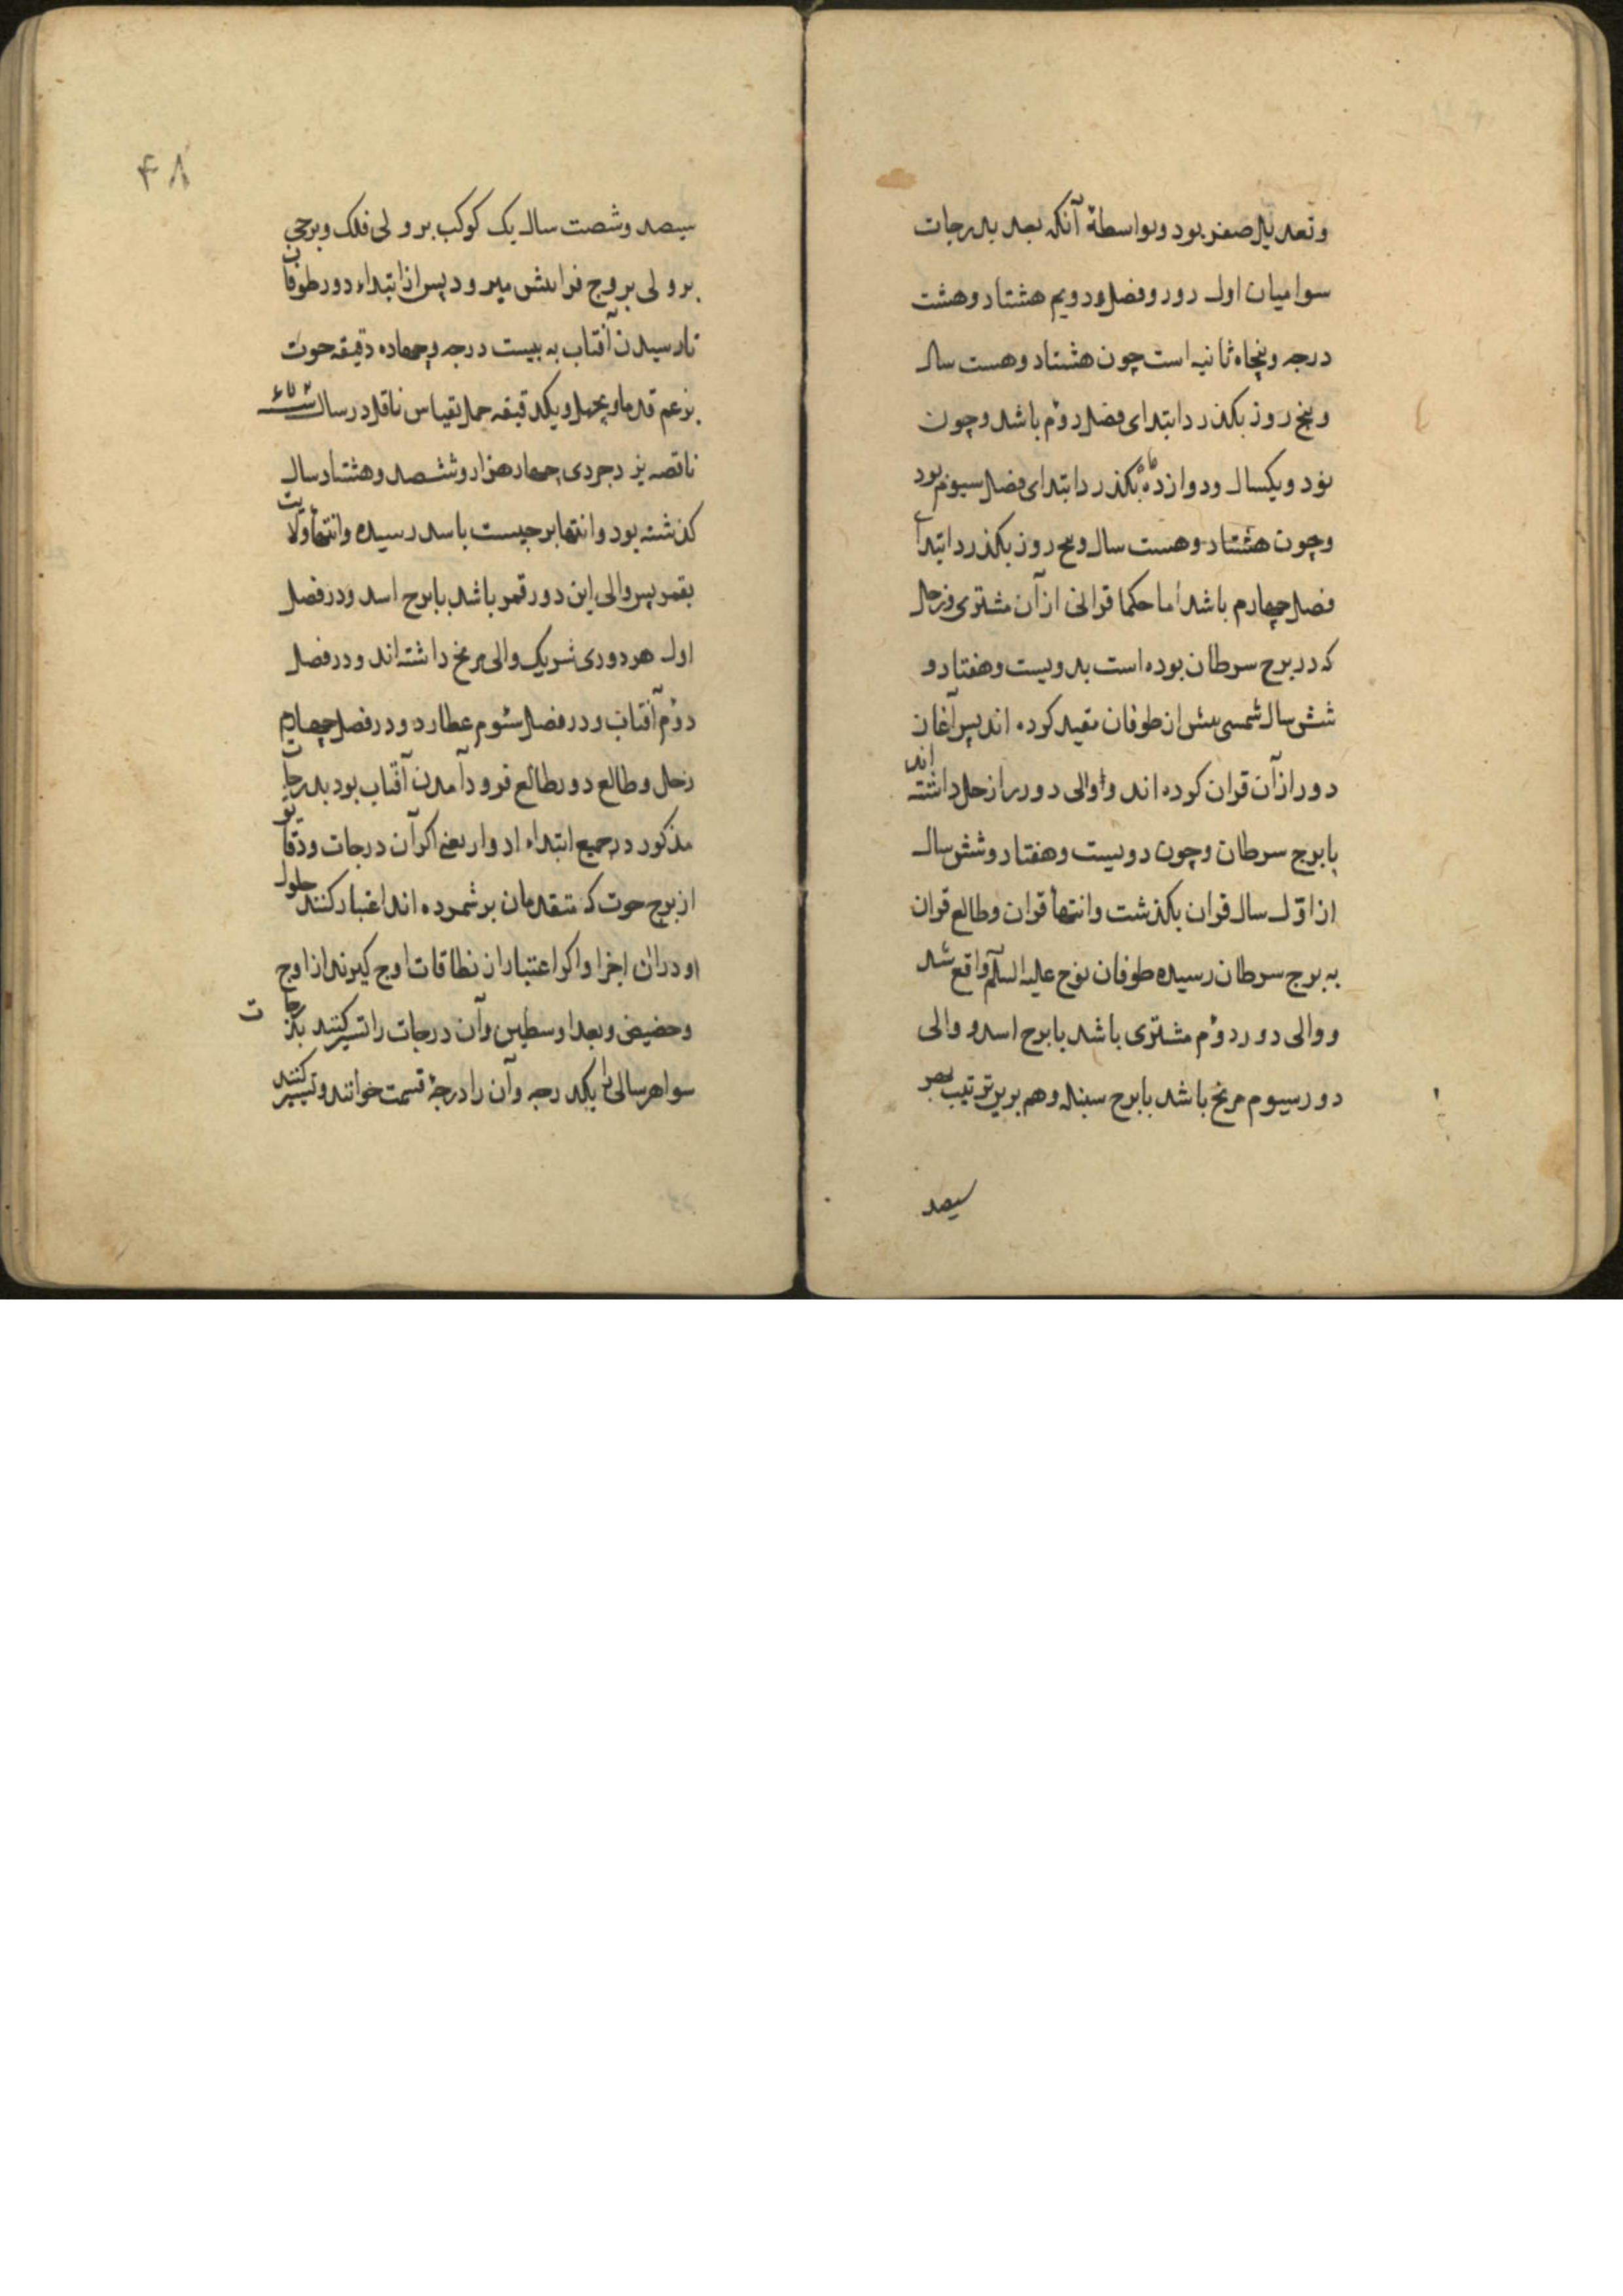 وتعدیل صفر بود وبواسطهٔ آنکه بعد بدرجات
سوا میان اول دور وفصل ودویم هشتاد وهشت
درجه وپنجاه ثانیه است چون هشتاد وهست سال
وپنج روز بکذرد ابتدای فصل دوم باشد وچون
نود ویکسال ودوازده ماه بکذرد ابتدای فصل سیوم بود
وچون هشتاد وهست سال وپنج روز بکذرد ابتدای
فصل چهارم باشد اما حکما قرانی از آن مشتری وزحل
که در برج سرطان بوده است بدویست وهفتاد و
شش سال شمسی پیش از طوفان مقید کرده اند پس آغاز
دور از آن قران کرده اند ووالی دور را زحل داشته اند
با برج سرطان وچون دویست وهفتاد وشش سال
از اول سال قران بکذشت وانتهاء قران وطالع قران
به برج سرطان رسیده طوفان نوح علیه السلم واقع شد
ووالی دور دوم مشتری باشد با برج اسد ووالی
دور سیوم مریخ باشد با برج سنبله وهم برین ترتیب بهر
سیصد
۴۸
سیصد وشصت سال یک کوکب بر ولی فلک وبرجی
بر ولی بروج فرا پیش میرود پس از ابتداء دور طوفان
تا رسیدن آفتاب به بیست درجه وچهارده دقیقه حوت
بزعم قدما وبچهل ویکدقیقه حمل بقیاس ناقل در سال
ناقصه یزدجردی چهار هزار وششصد وهشتاد سال
کذشته بود وانتها برجیست باسد رسیده وانتهاء ولایت
بقمر پس والی این دور قمر باشد با برج اسد ودر فصل
اول هر دوری شریک والی مریخ داشته اند ودر فصل
دوم آفتاب ودر فصل سیوم عطارد ودر فصل چهارم
زحل وطالع دور طالع فرود آمدن آفتاب بود بدرجات
مذکور در جمیع ابتداء ادوار یعنی اکر آن درجات ودقایق
از برج حوت که متقدمان بر شمرده اند اعتبار کنند حلول
او در آن اجزا واکر اعتبار از نطاقات اوج کیرند از اوج
وحضیض وبعد اوسطین وآن درجات را تسییر کنند بدرجات
سوا هر سالی را یکدرجه وآن را درجهٔ قسمت خوانند وتسییر کنند